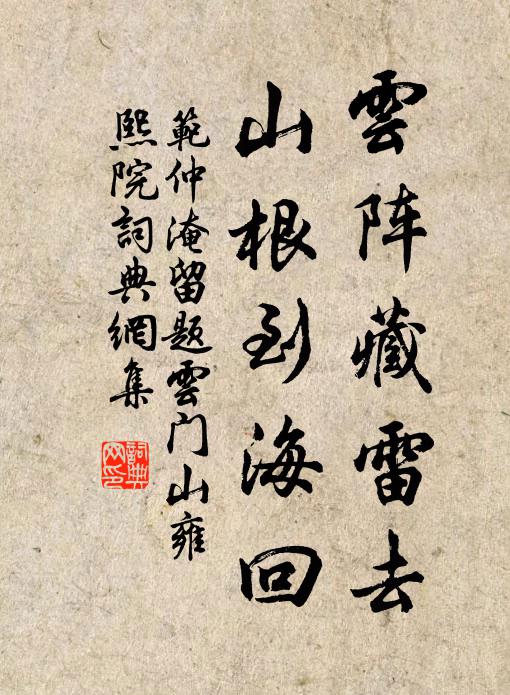 雲阵藏雷去
山根到海回
範仲淹留題雲门山雍
熙院詞典網集
詞典
网印